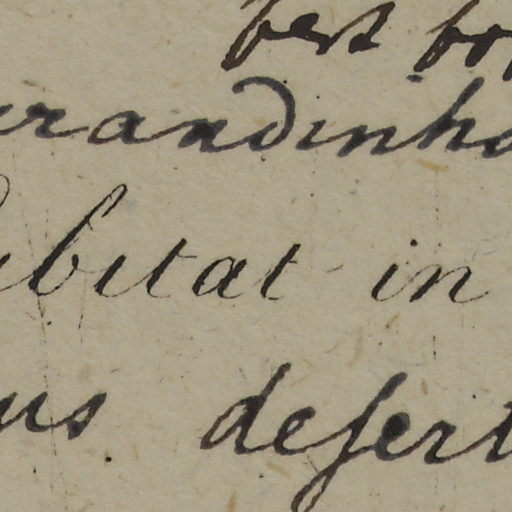 best bo
randinho
bitat in
us desert